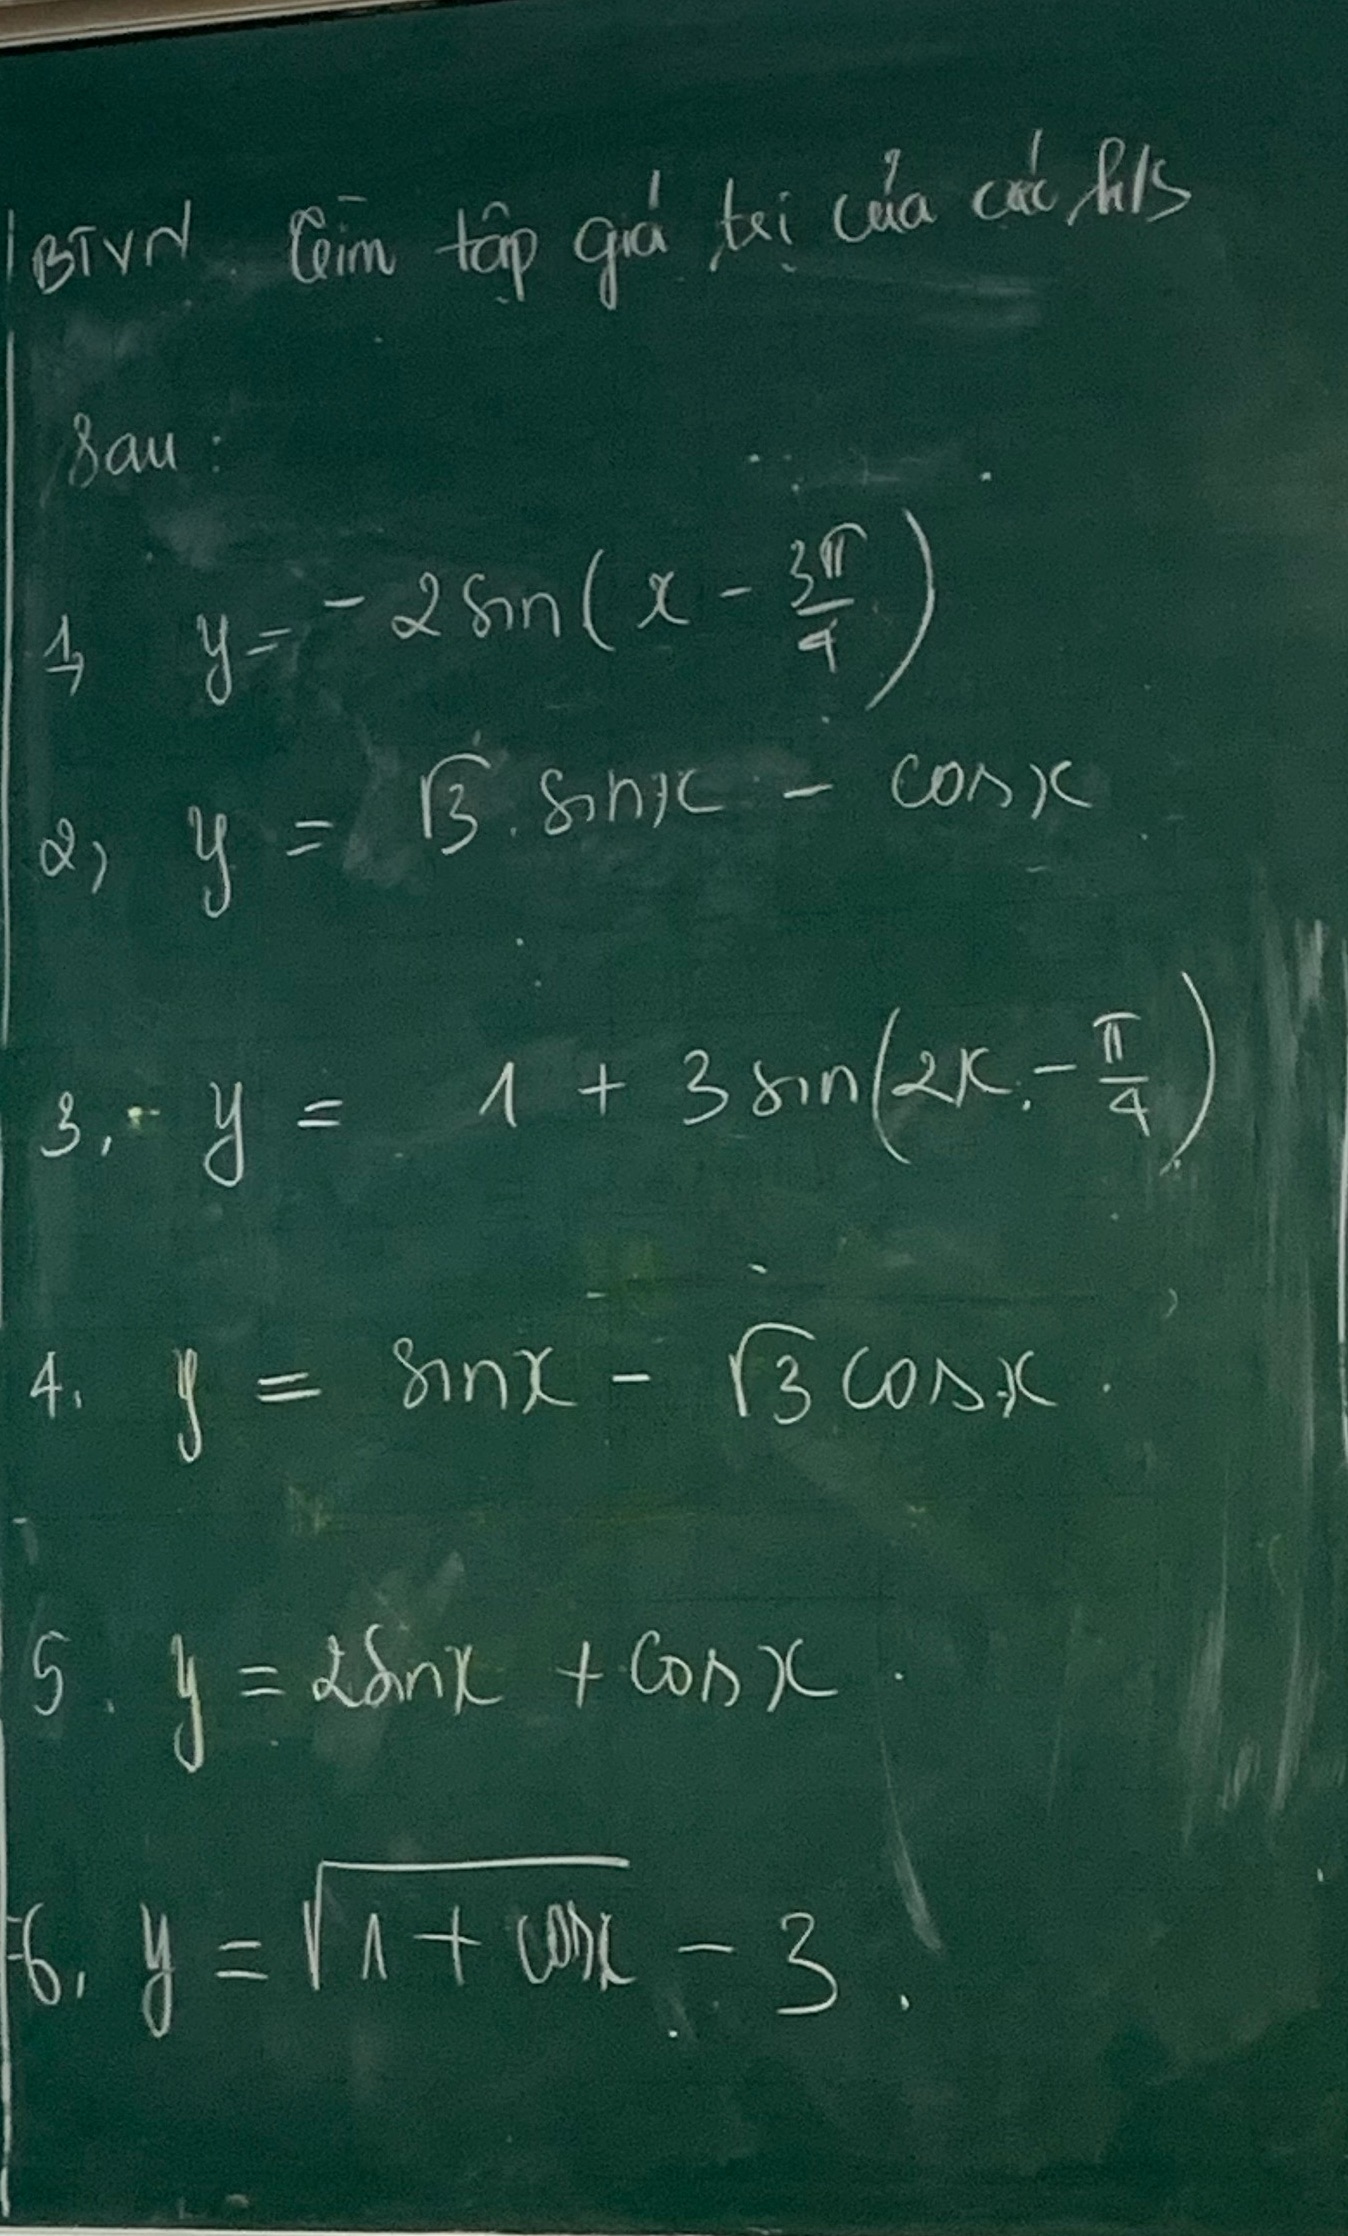 BTVN Tìm tập giá trị của các h/s
sau:
1, y = -2 sin(x - 3π/4)
2, y = √3. sinx - cosx
3, y = 1 + 3 sin(2x - π/4)
4. y = sinx - √3 cosx.
5. y = 2sinx + cosx.
6. y = √(1 + cosx) - 3.